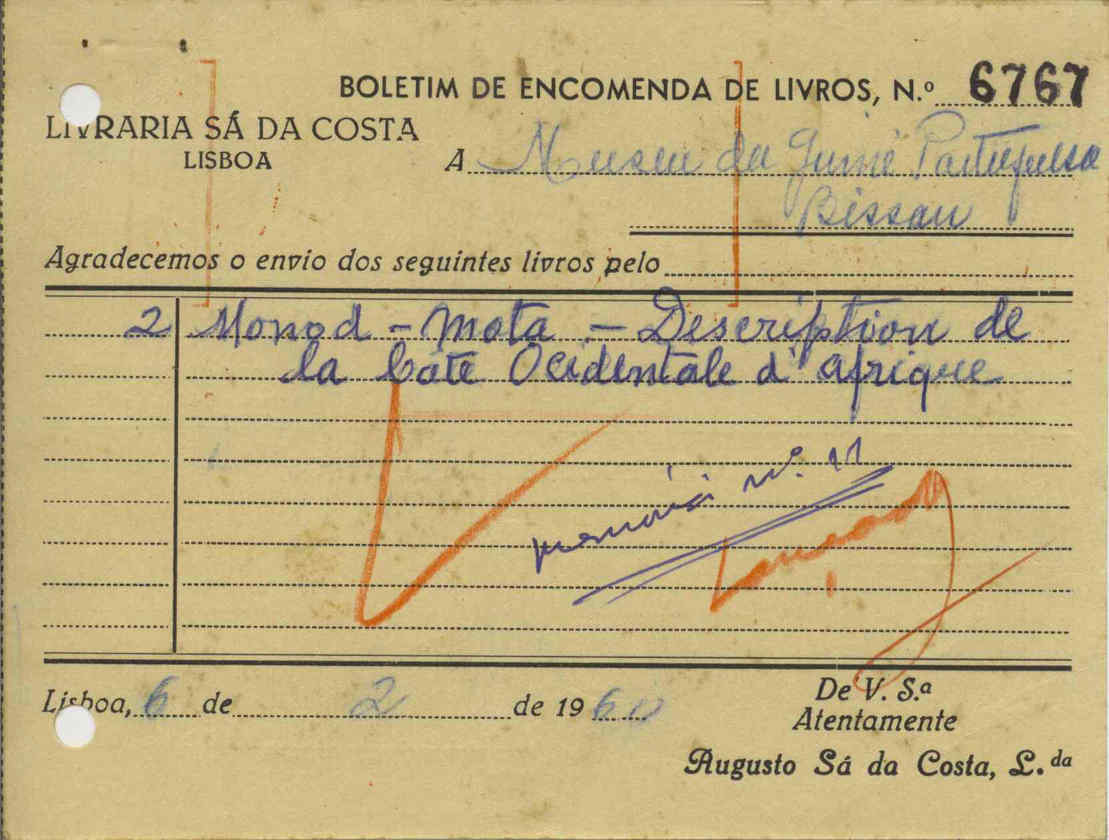 BOLETIM DE ENCOMENDA DE LIVROS, N.º 6767
LIVRARIA SÁ DA COSTA
LISBOA
A Museu da Guiné Portuguesa
Bissau
Agradecemos o envio dos seguintes livros pelo
2 Monod - Mota - Description de
la Côte Ocidentale d'Afrique
memória n.º 11
Lisboa, 6 de 2 de 1960
De V. S.ª
Atentamente
Augusto Sá da Costa, L.da